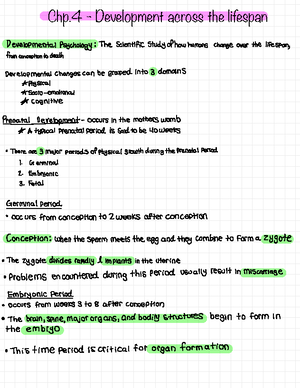 Chp.4 - Development across the lifespan
Developmental Psychology: The Scientific Study of how humans change over the lifespan,
from conception to death
Developmental Changes can be grouped into 3 domains
★ Physical
★ Socio-emotional
★ Cognitive
Prenatal Development - occurs in the mothers womb
★ A typical Prenatal period is said to be 40 weeks
• There are 3 major periods of Physical Growth during the Prenatal Period
1. Germinal
2. Embryonic
3. Fetal
Germinal period
• occurs from conception to 2 weeks after conception
Conception: when the sperm meets the egg and they combine to form a zygote
• The zygote divides rapidly & implants in the uterine
• Problems encountered during this period usually result in miscarriage
Embryonic Period
• occurs from weeks 3 to 8 after conception
• The brain, spine, major organs, and bodily structures begin to form in
the embryo
• This time period is critical for organ formation